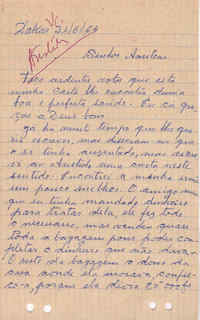 Dakar 22/8/69
Senhor Amilcar
Faço ardentes votos que esta
minha carta lhe encontre duma
boa e perfeita saude. Eu cá go
ças a Deus bom.
Já ha muito tempo que lhe que
ria escrever, mas disseram me que
o sr. tinha ausentado, mas
sentido. Encontrei a minha
um pouco melhor. O amigo
que eu tinha mandado dinheiro
para tratar dela, ele fez tudo
o necessario, mas vendeu quase
toda a bagagem para poder com
pletar o dinheiro que não
O resto da bagagem o dono da
casa aonde ela morava confis
co-a, porque ela devia